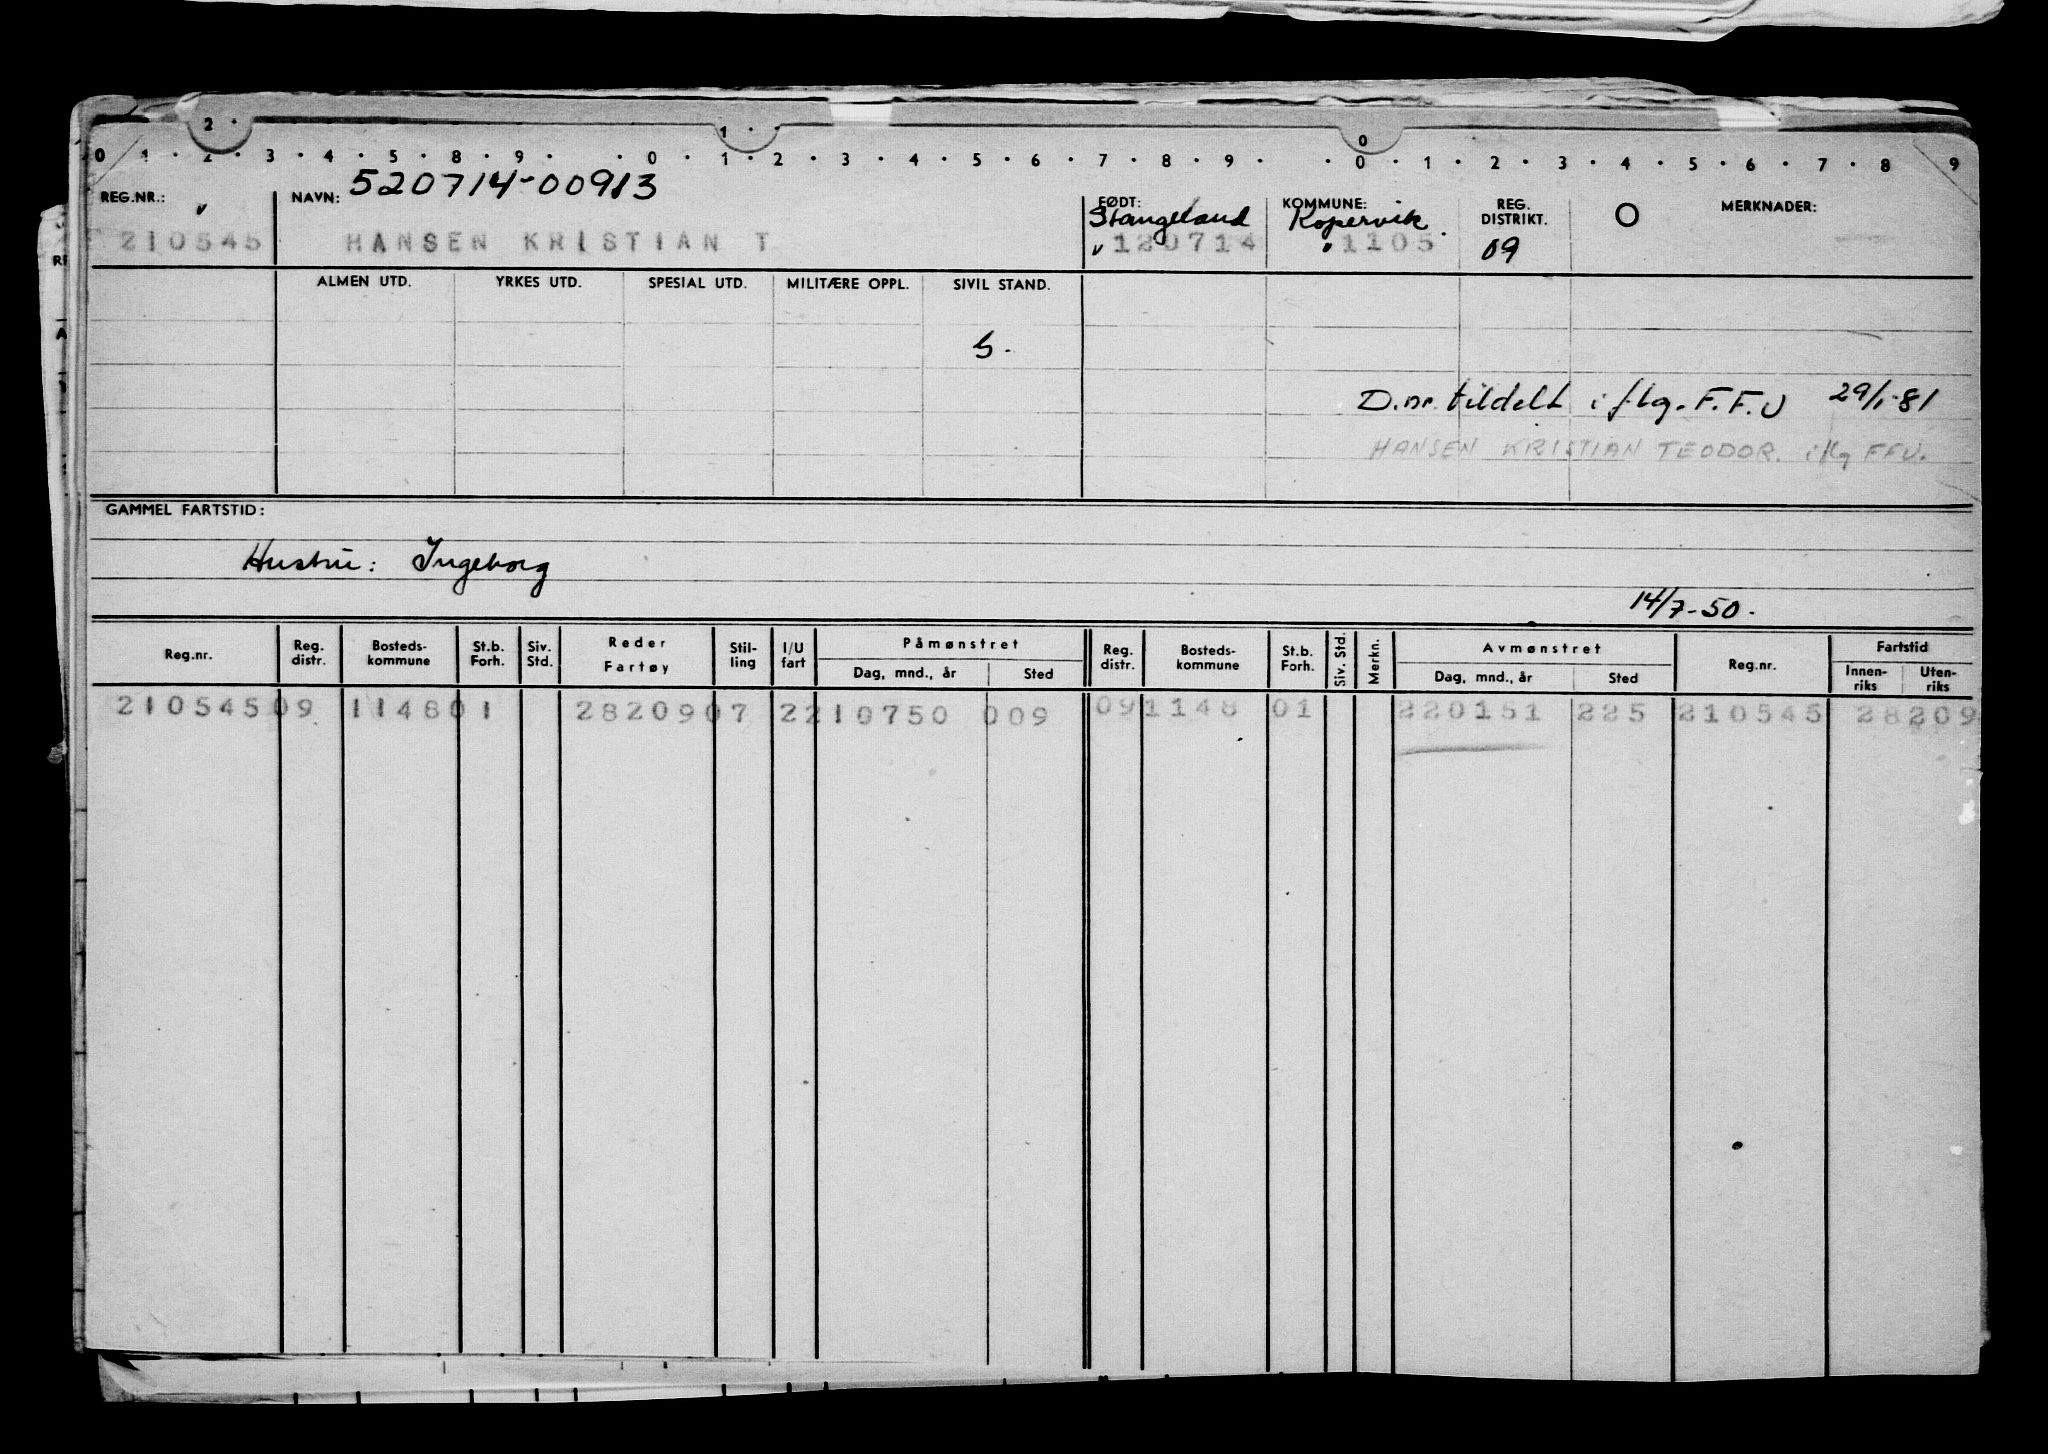 2 · 1 · · 0
0 1 · 2 · 3 · 4 · 5 · 8 · 9 · · 0 · 1 · 2 · 3 · 4 · 5 · 6 · 7 · 8 · 9 · · 0 · 1 · 2 · 3 · 4 · 5 · 6 · 7 · 8 9
520714-00913
REG.NR.: NAVN: FØDT: KOMMUNE: REG. DISTRIKT. O MERKNADER:
Stangeland Kopervik.
210545 HANSEN KRISTIAN T 120714 1105 09
ALMEN UTD. YRKES UTD. SPESIAL UTD. MILITÆRE OPPL. SIVIL STAND.
D.nr. tildelt i flg. F.F.U 29/1-81
HANSEN KRISTIAN TEODOR. iflg FFU.
GAMMEL FARTSTID:
Hustru: Ingeborg
14/7-50.
Reg.nr. Reg. distr. Bosteds-kommune St.b. Forh. Siv. Std. Reder Fartøy Stil-ling I/U fart Påmønstret Dag, mnd., år Sted Reg. distr. Bosteds-kommune St.b. Forh. Siv. Std. Merkn. Avmønstret Dag, mnd., år Sted Reg.nr. Fartstid Innen-riks Uten-riks
210545 09 1148 01 28209 07 2 210750 009 09 1148 01 220151 225 210545 28209